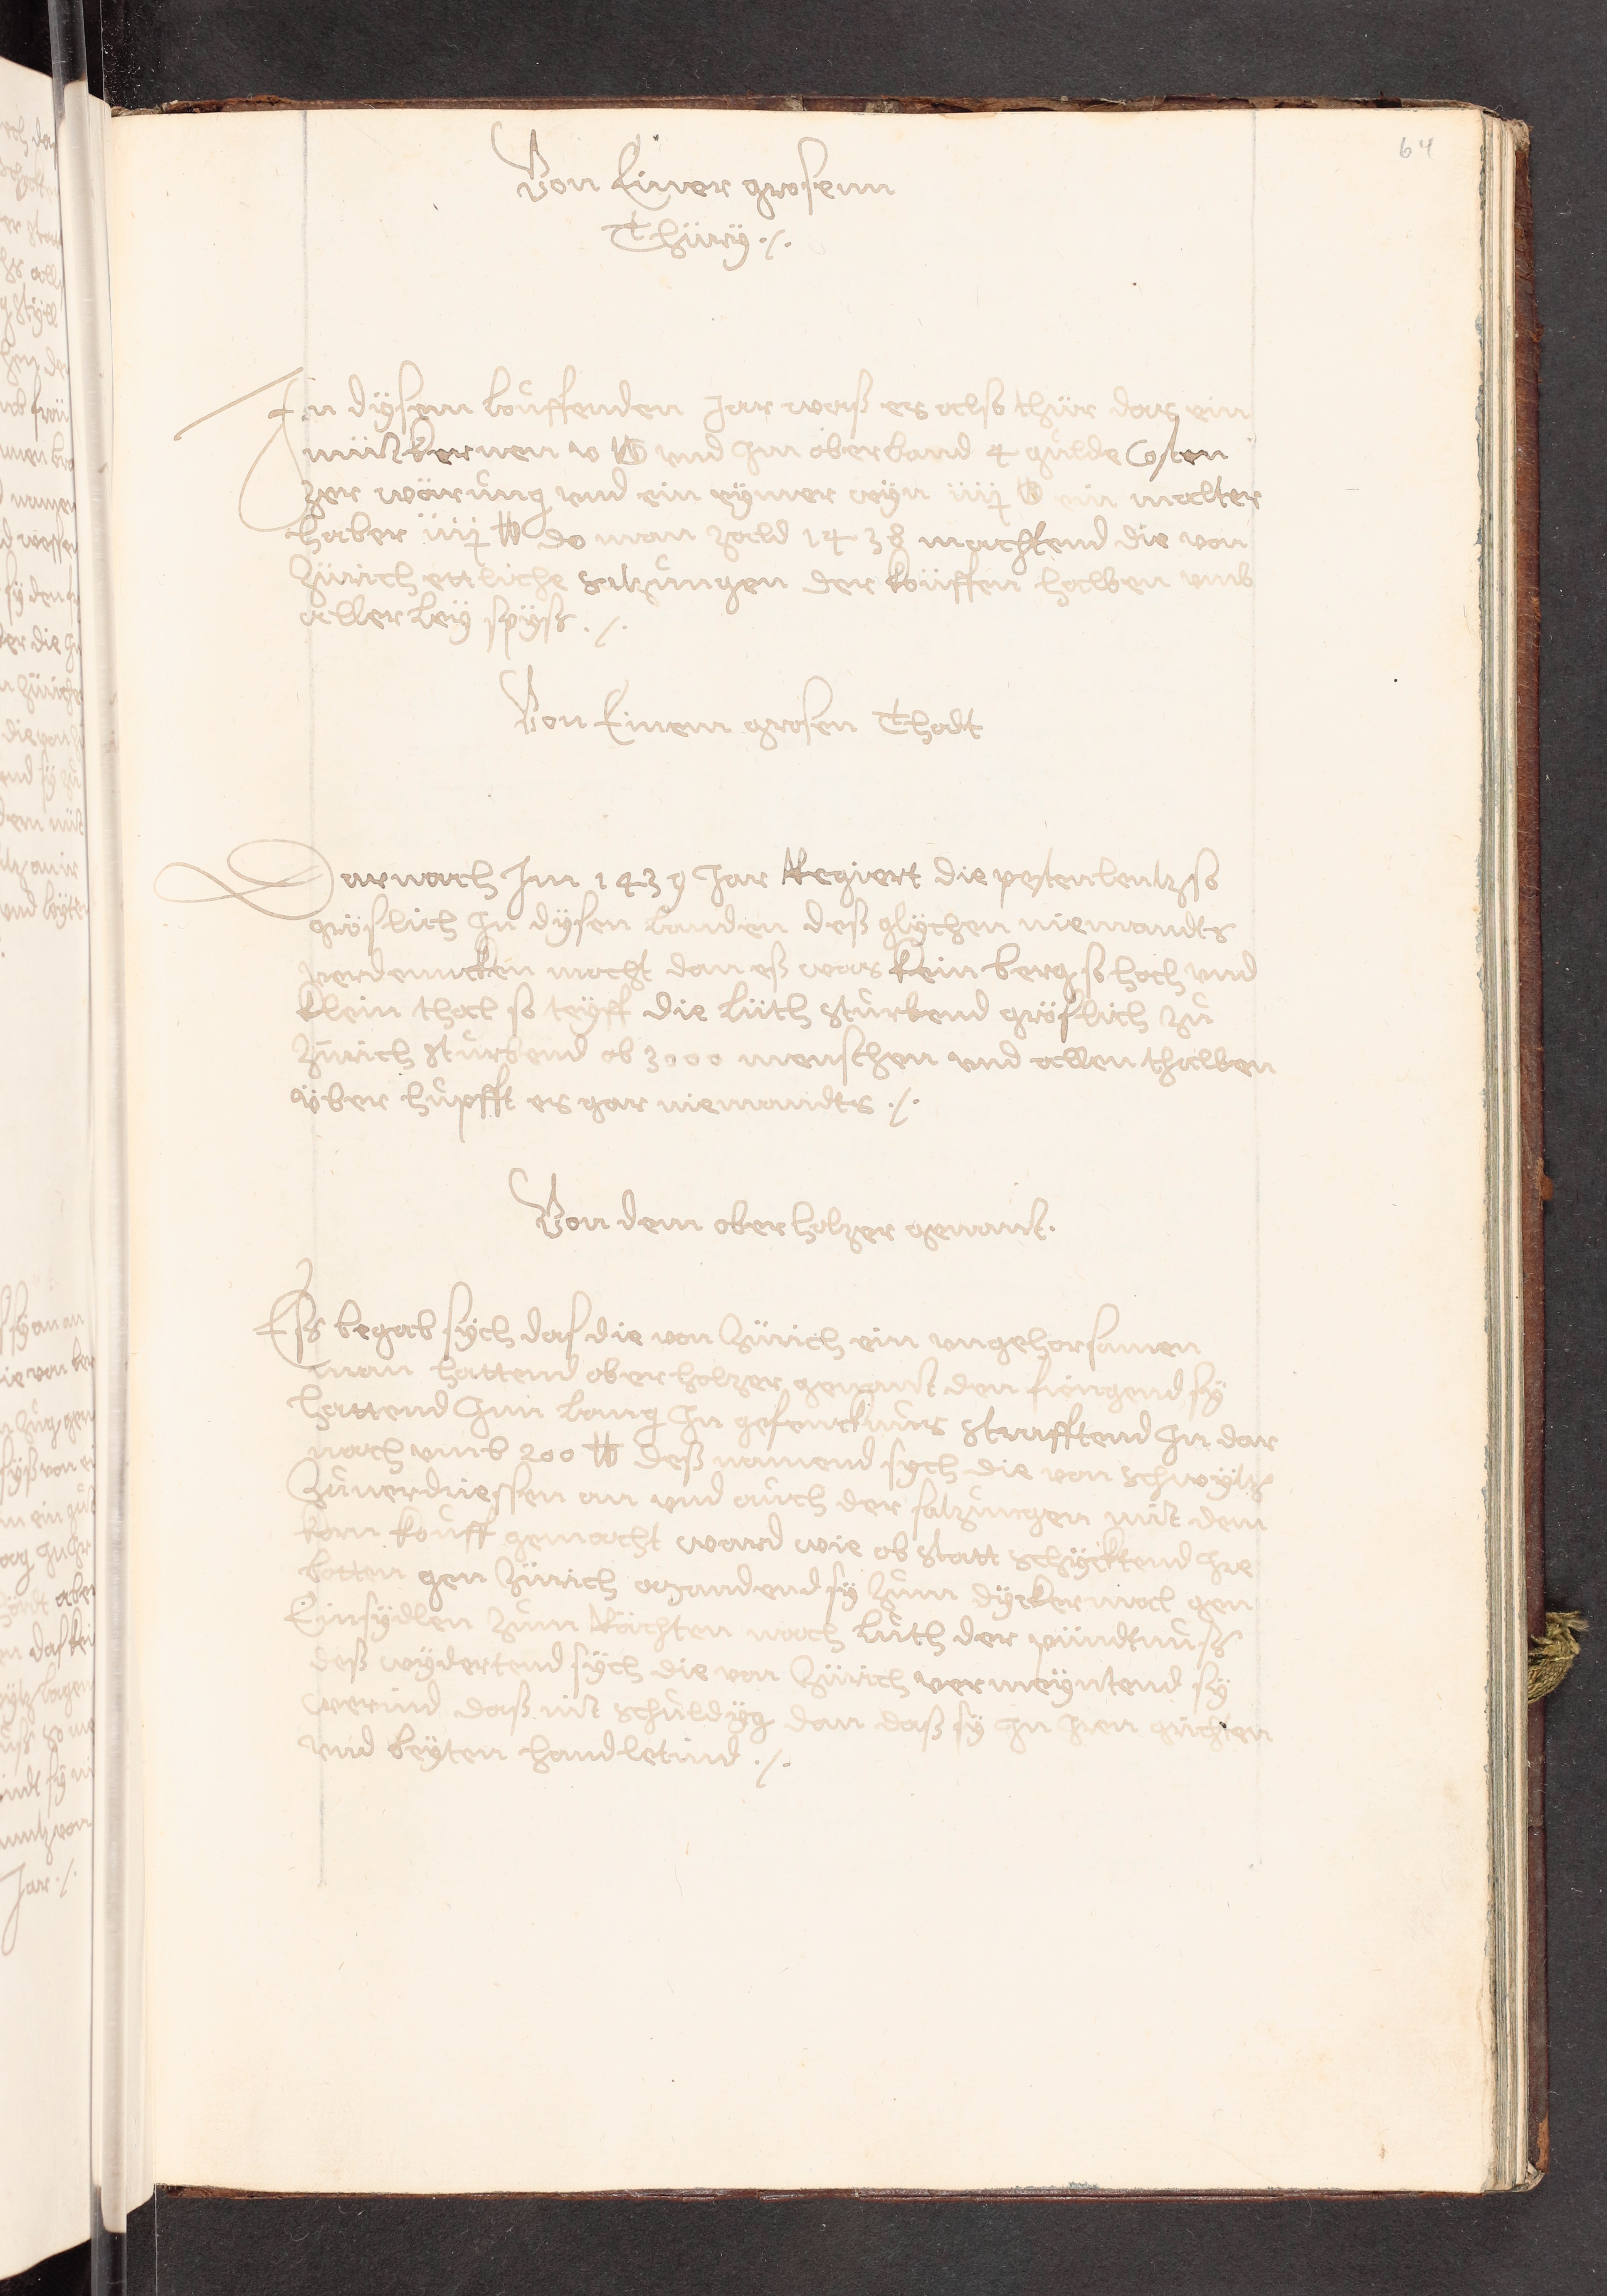 64
Von Einer grosenn
Thüry ./.
In dysem louffenden Jar waß es also thür das ein
mütt kernen v ℔ vnd Im oberland 4 gulde Costen
zer wärung vnd ein eymer wyn iiij ℔ ein malter
haber iiij ℔ do man zald 1438 machtend die von
Zürich ettliche satzungen der köüffen halben vmb
allerley spyß ./.
Von Einem grosen Thodt
Darnach Im 1439 Jar Regiert die pestenlentz so
gröslich In dysen landen deß glychen niemandts
verdencken mocht dan eß was kein berg so hoch vnd
klein thal so teyff die lüth sturbend gröslich zu
Zürich sturbend ob 3000 menschen vnd allen thalben
über hupfft es gar niemandts ./.
Von dem oberholzer genant.
Eß begab sych das die von Zürich ein vngehorsamen
man hattend oberholzer genant den fiengend sy
hattend Inn lang In gefencknus strafftend In dar
nach vmb 200 ℔ deß namend sych die von schwytz
Zuuerdriessen an vnd auch der satzungen mit dem
korn kouff gemacht ward wie ob statt schycktend Ire
botten gen Zürich manend sy zum dycker mal gen
Einsydlen zum Rächten nach luth der pündtnuß
deß wydertend sych die von Zürich vermeyntend sy
werind daß nit schuldyg dan daß sy In Iren grichten
vnd leyten handletind ./.